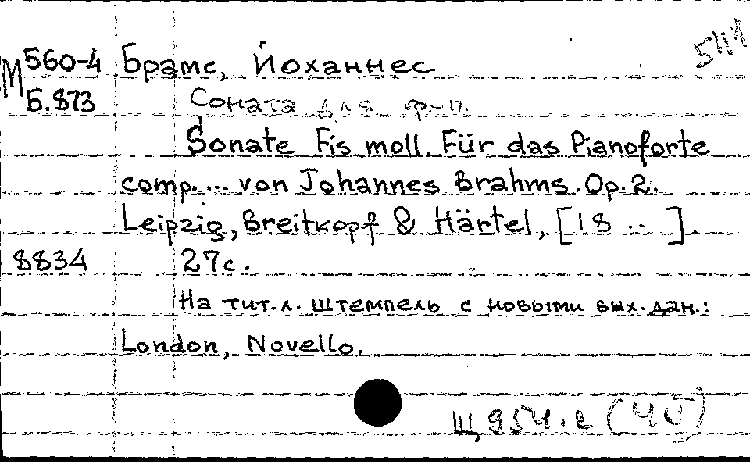 М 560-4 Брамс, Йоханнес
Б.873 Соната для ф-п.
Sonate Fis moll. Für das Pianoforte
comp. ... von Johannes Brahms. Op. 2.
Leipzig, Breitkopf & Härtel, [18 ...]
8834 27с.
На тит.л. штемпель с новыми вых. дан.:
London, Novello.